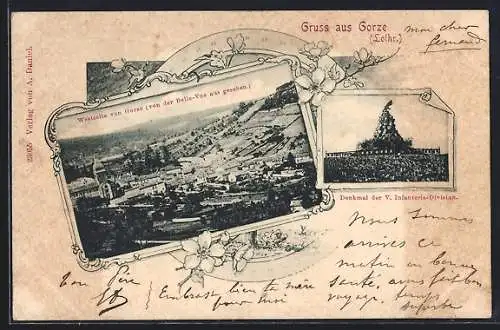 Gruss aus Gorze
(Lothr.)
mon cher
fernand
Westseite von Gorze (von der Belle-Vue aus gesehen.)
Verlag von A. Daniel.
Denkmal der V. Infanterie-Division.
Nous sommes
arrivés ce
matin en bonne
santé, avons fait bon
voyage, temps
superbe
Ton Père
Embrasse bien ta mère
pour moi